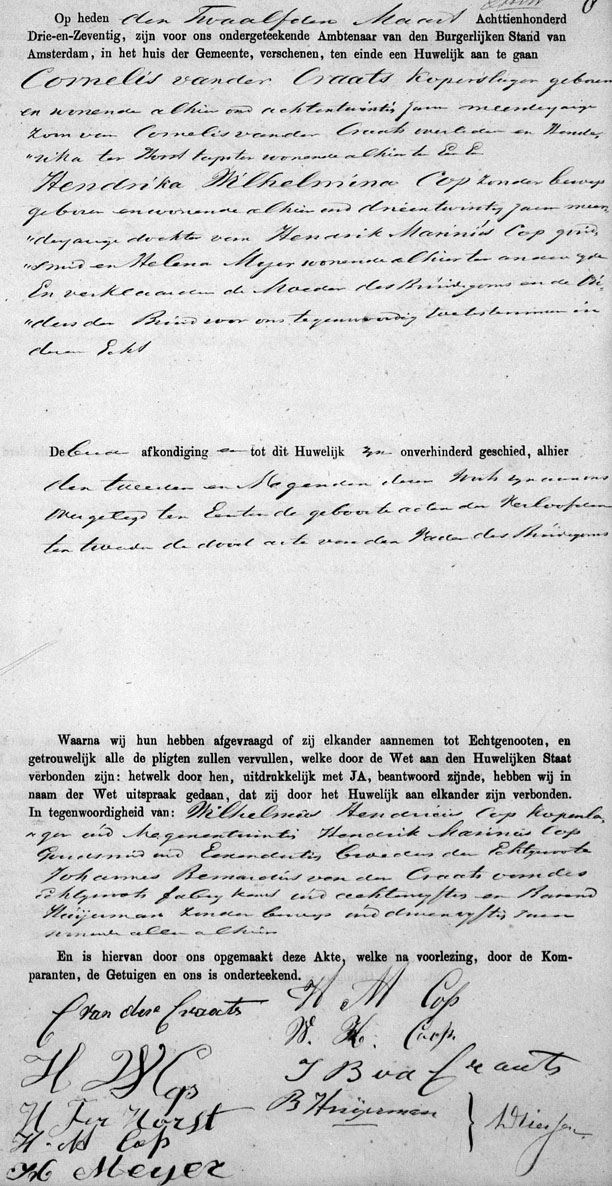 Op heden den Twaalfden Maart Achttienhonderd
Drie-en-Zeventig, zijn voor ons ondergeteekende Ambtenaar van den Burgerlijken Stand van
Amsterdam, in het huis der Gemeente, verschenen, ten einde een Huwelijk aan te gaan
Cornelis vander Craats Koperslager geboren
en wonende alhier oud achtentwintig jaren meerderjarige
zoon van Cornelis vander Craats overleden en Hende
"rika ter Horst tapster wonende alhier te Een
Hendrika Wilhelmina Cop zonder beroep
geboren en wonende alhier oud drieentwintig jaren meer
"derjarige dochter van Hendrik Marinus Cop goud
"smid en Helena Meyer wonende alhier ter andere zyde
En verklaarden de Moeder des Bruidegoms en de Ou
"ders der Bruid voor ons tegenwoordig toetestemmen in
dezen Echt
De beide afkondiging en tot dit Huwelijk zyn onverhinderd geschied, alhier
den tweeden en Negenden dezer Voorts zyn aan ons
overgelegd ten Eersten de geboorte acten der Verloofden
ten tweeden de dood acte van den Vader des Bruidegoms
Waarna wij hun hebben afgevraagd of zij elkander aannemen tot Echtgenooten, en
getrouwelijk alle de pligten zullen vervullen, welke door de Wet aan den Huwelijken Staat
verbonden zijn: hetwelk door hen, uitdrukkelijk met JA, beantwoord zijnde, hebben wij in
naam der Wet uitspraak gedaan, dat zij door het Huwelijk aan elkander zijn verbonden.
In tegenwoordigheid van: Wilhelmus Hendricus Cop Kopersla
"ger oud Negenentwintig Hendrik Marinus Cop
Goudsmid oud Eenendertig broeders der Echtgenoote
Johannes Bernardus van der Craats oom des
Echtgenoots fabrykant oud achtenvyftig en Barend
Huijerman zonder beroep oud drieenvyftig jaren
wonende allen alhier
En is hiervan door ons opgemaakt deze Akte, welke na voorlezing, door de Kom-
paranten, de Getuigen en ons is onderteekend.
C van der Craats
H M Cop
W. H. Cop.
H W Cop
J B vd Craats
H Ter Horst
B Huijerman
H. M Cop
H Meyer